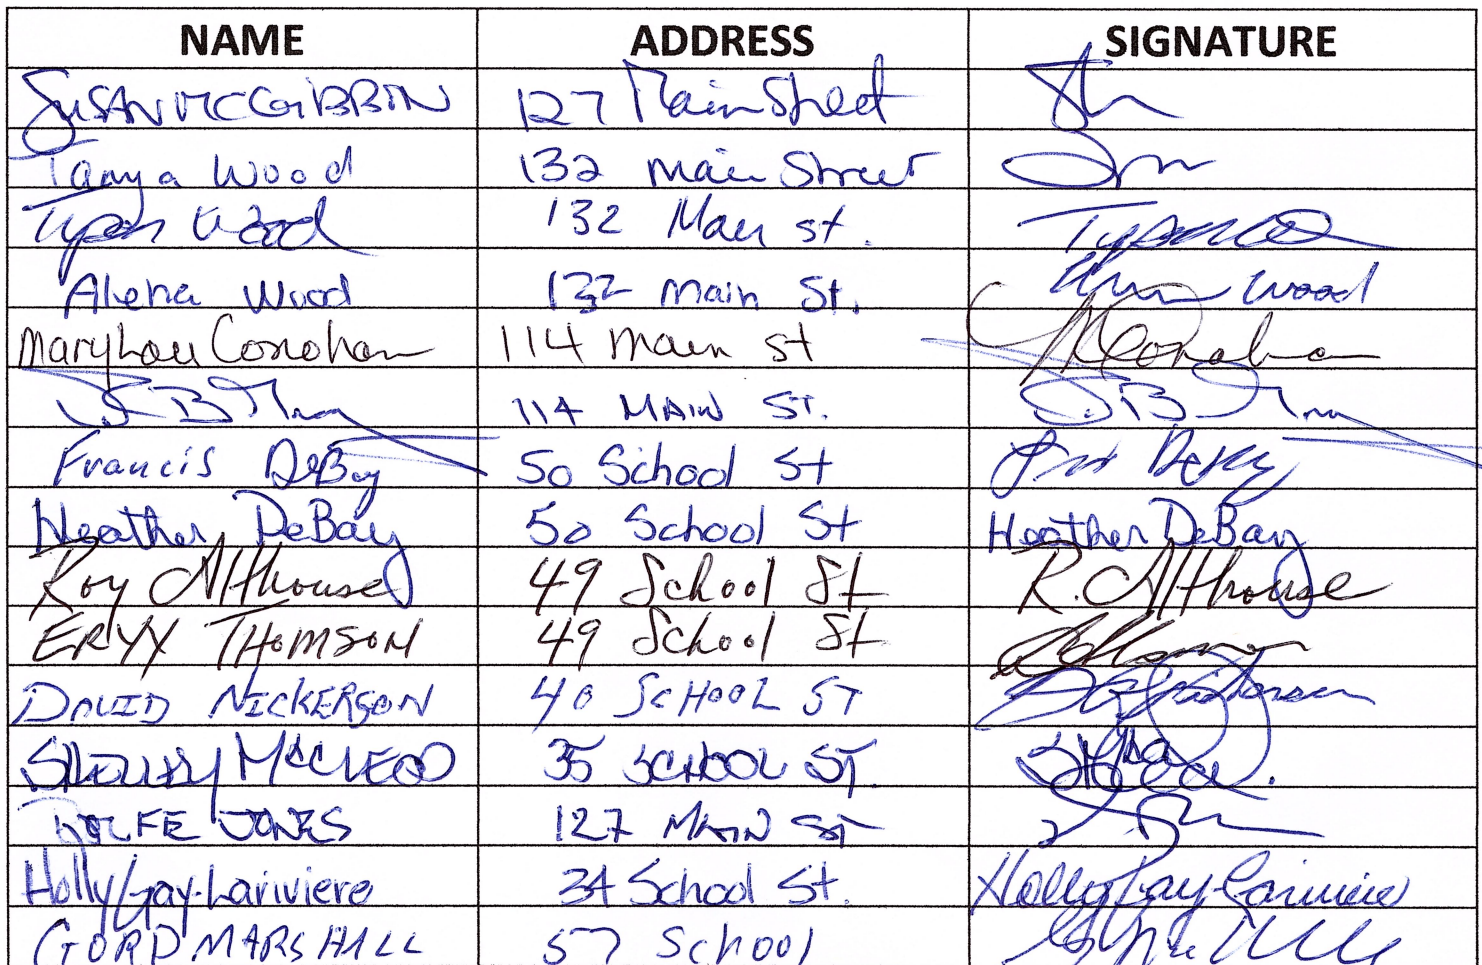 NAME ADDRESS SIGNATURE
SUSAN MCGIBBON 127 Main Street
Tanya Wood 132 Main Street
Wood 132 Main St.
Alena Wood 132 Main St. Wood
MaryLou Conohan 114 Main St MConohan
114 MAIN ST.
Francis DeBay 50 School St
Heather DeBay 50 School St Heather DeBay
Roy Althouse 49 School St R. Althouse
ERYX THOMSON 49 School St
DAVID NICKERSON 40 SCHOOL ST
SHELLEY MCLEOD 35 SCHOOL ST.
ROLFE JONES 127 MAIN ST
Holly Gay-Lariviere 34 School St. Holly Gay-Lariviere
GORD MARSHALL 57 School